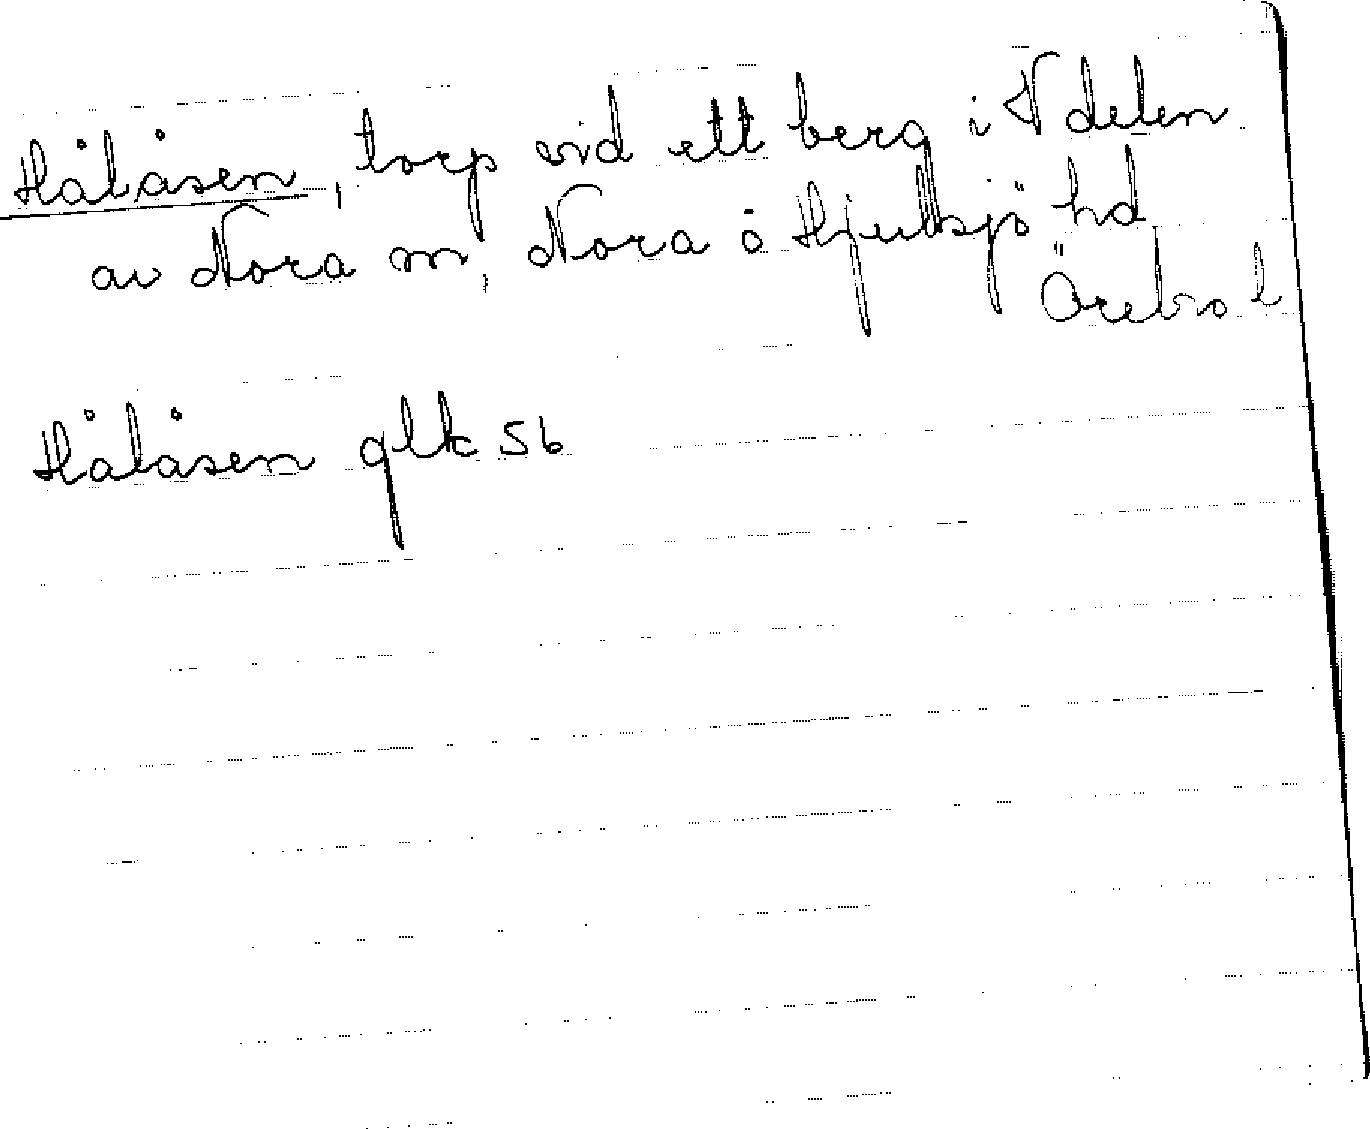 Hålåsen, torp vid ett berg i V delen
av Nora m, Nora o Hjulsjö hd
Örebro l
Hålåsen glk 56